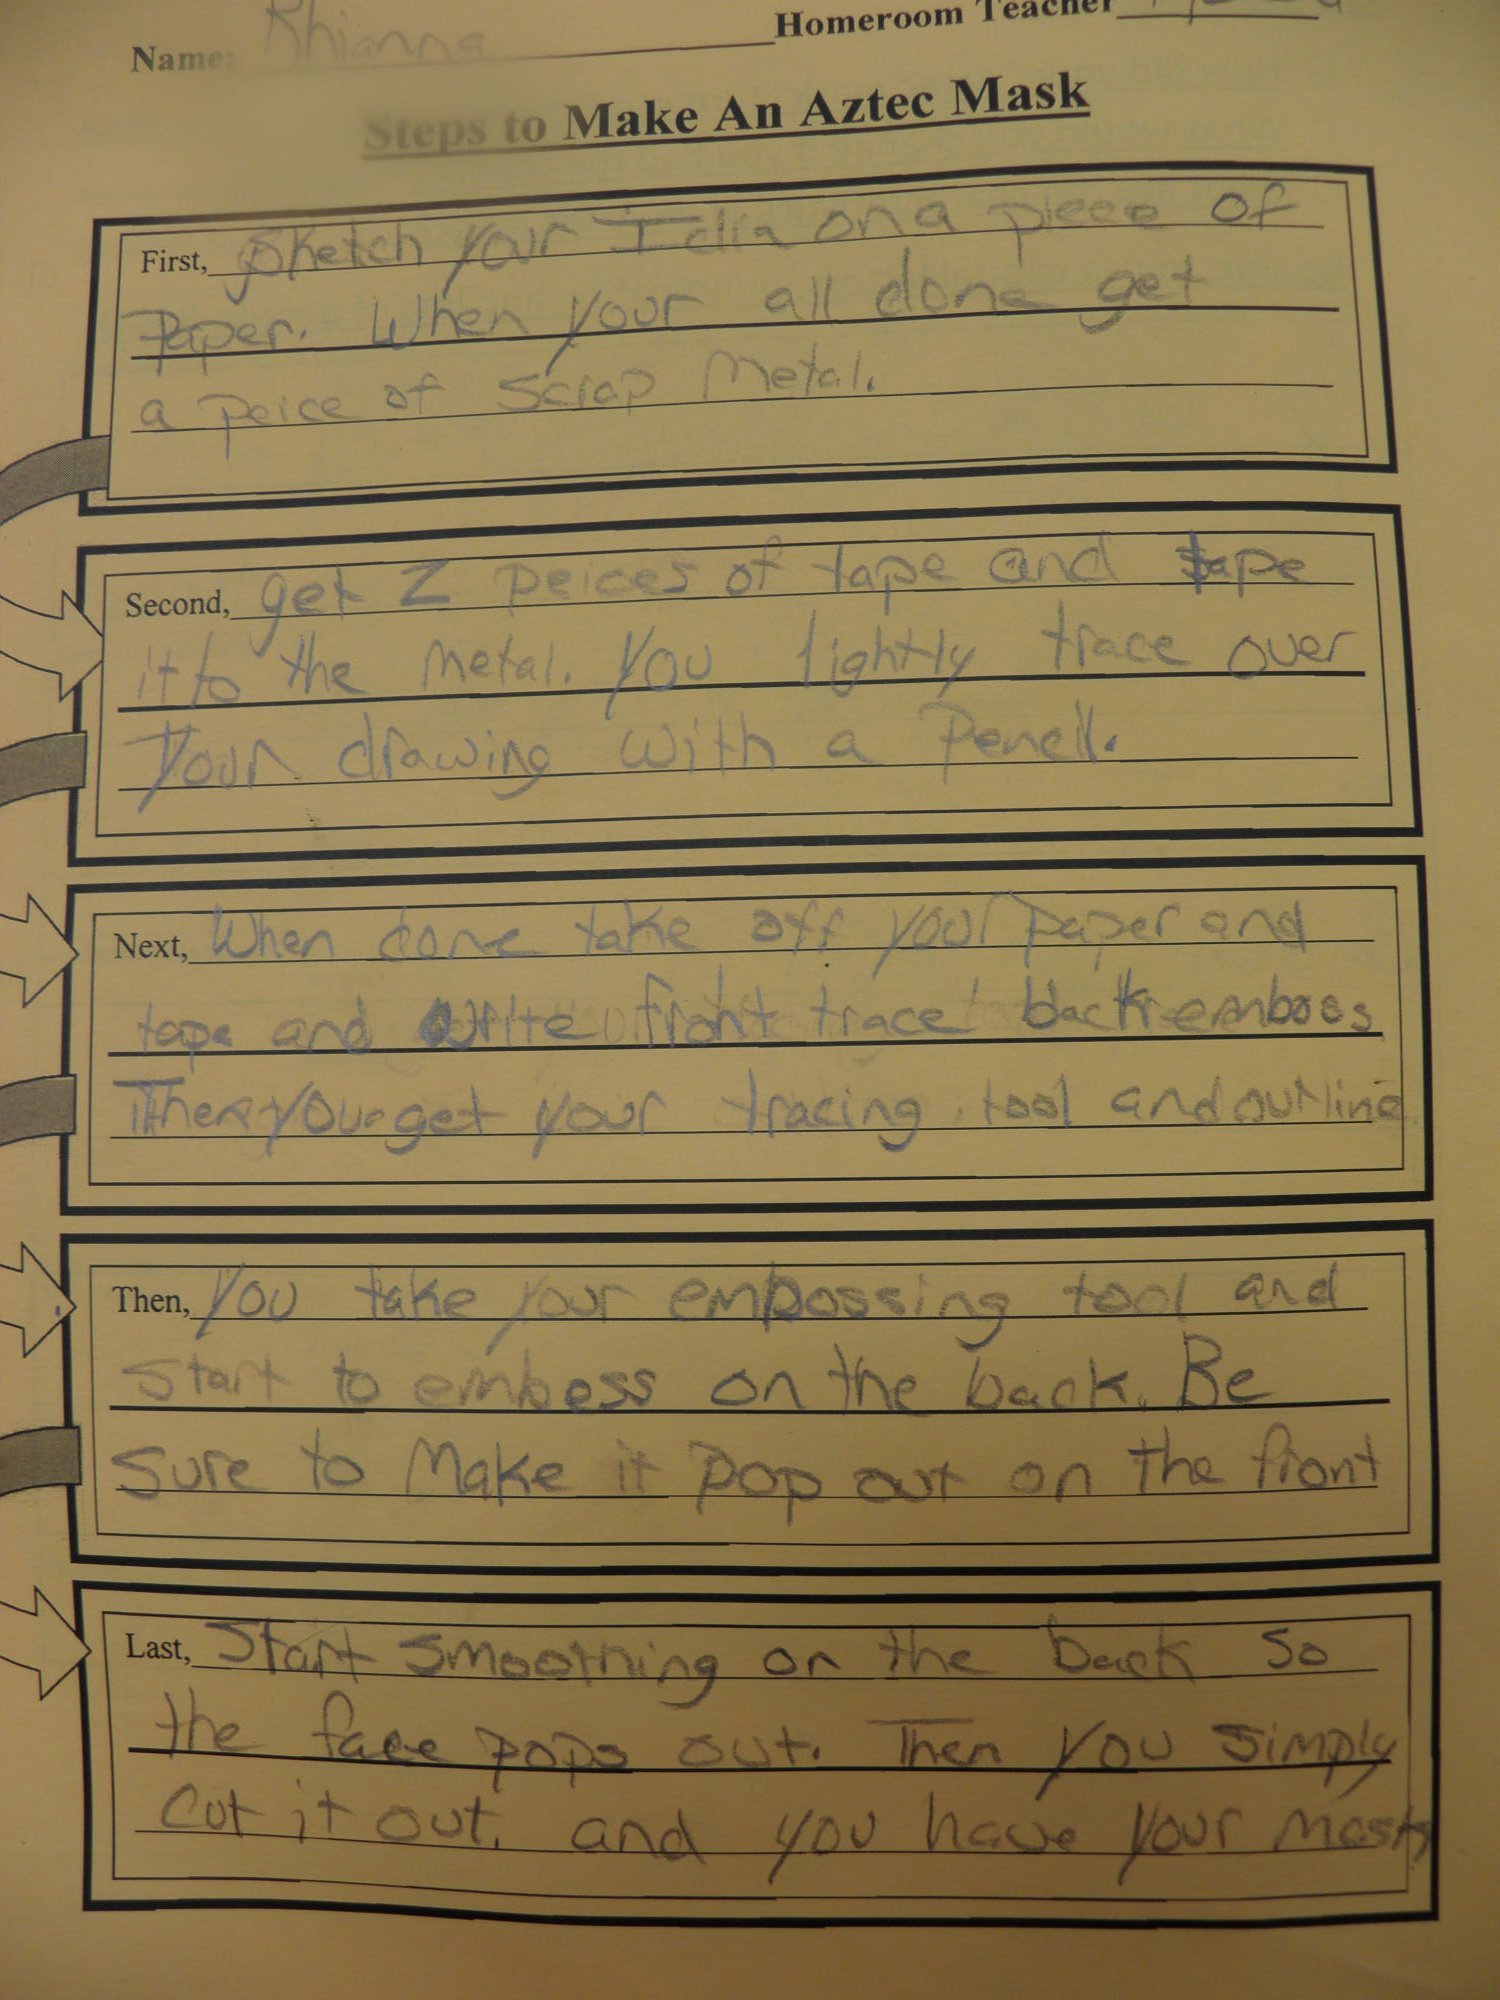 Name: Rhianna Homeroom Teacher
Steps to Make An Aztec Mask
First, Sketch your Idia on a piece of
Paper. When your all done get
a peice of scrap Metal.
Second, get 2 peices of tape and tape
it to the metal. You lightly trace over
Your drawing with a Pencil.
Next, When done take off your paper and
tape and write front trace back emboss
Then you get your tracing tool and outline
Then, You take your embossing tool and
start to emboss on the back. Be
Sure to Make it Pop out on the front
Last, Start smoothing on the back so
the face pops out. Then you simply
Cut it out. and you have your mask